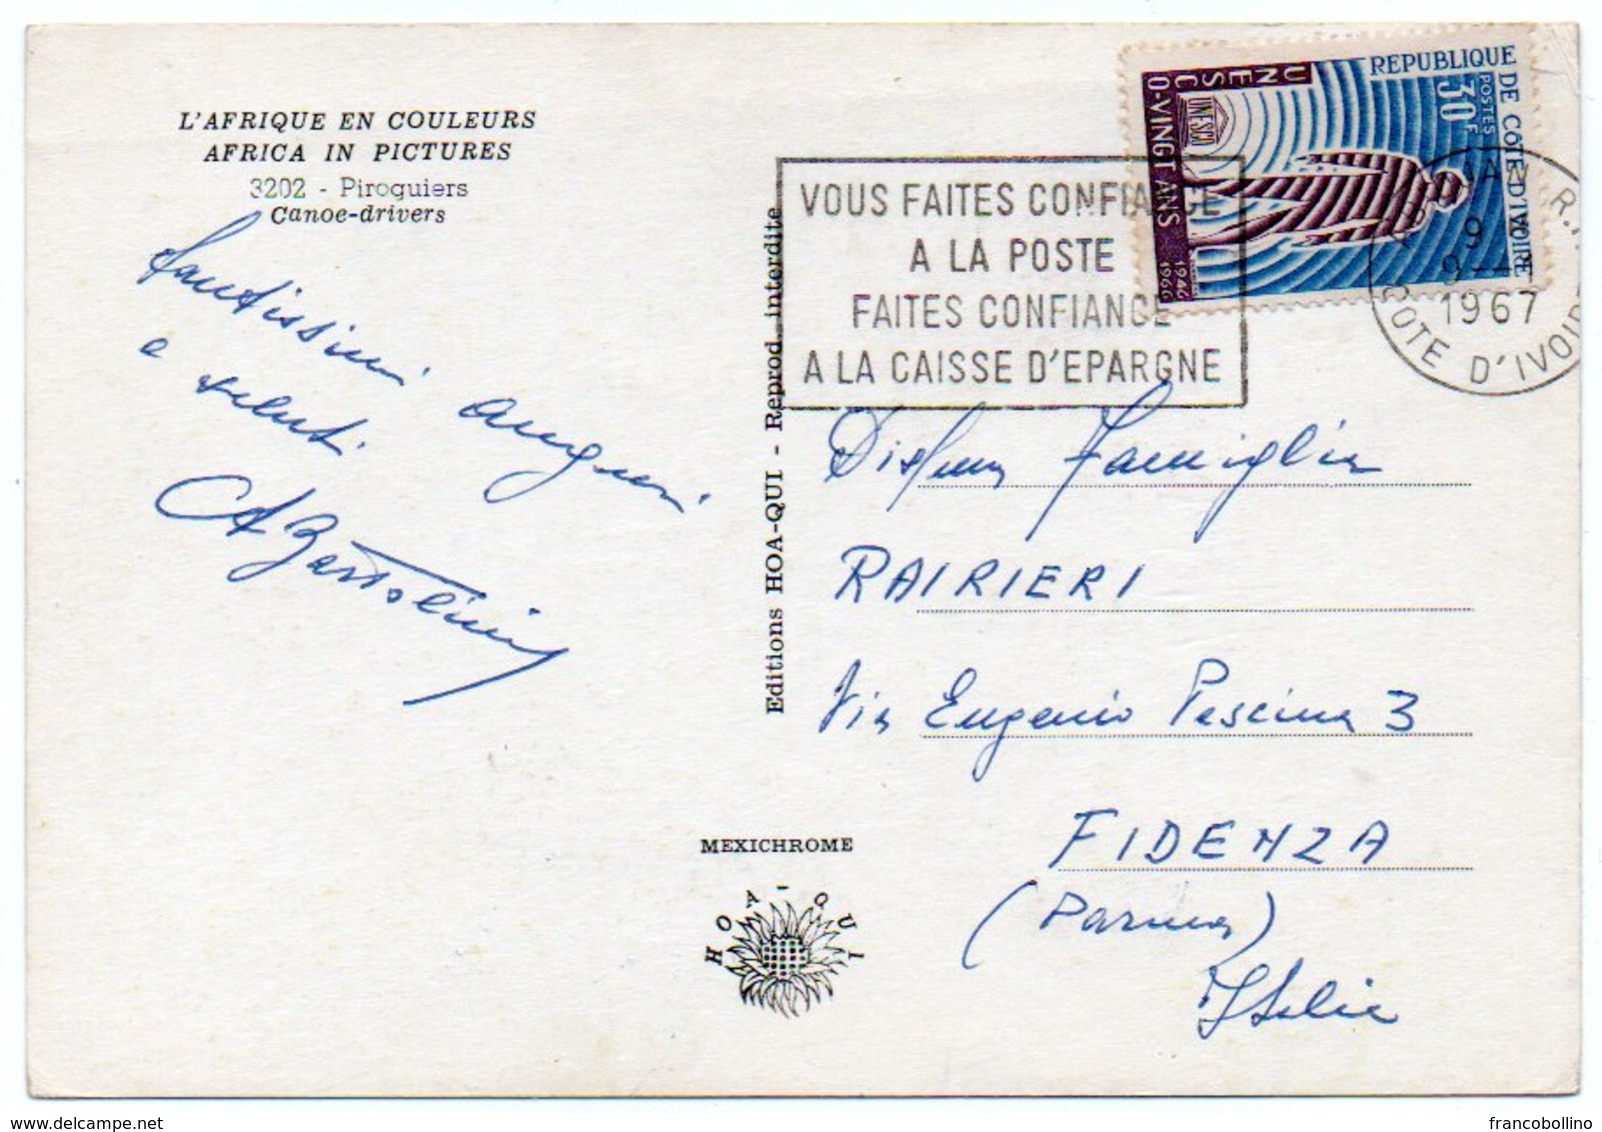 L'AFRIQUE EN COULEURS
AFRICA IN PICTURES
3202 - Piroguiers
Canoe-drivers
auguri
e saluti
A Bartolini
Editions HOA-QUI - Reprod. interdite
MEXICHROME
HOA-QUI
VOUS FAITES CONFIANCE
A LA POSTE
FAITES CONFIANCE
A LA CAISSE D'EPARGNE
REPUBLIQUE DE CÔTE D'IVOIRE
POSTES
30F
UNESCO-VINGT ANS
1946
1966
UNESCO
9
1967
COTE D'IVOIRE
Famiglia
RAIRIERI
Via Eugenio Pescina 3
FIDENZA
(Parma)
Italia
francobollino
delcampe.net